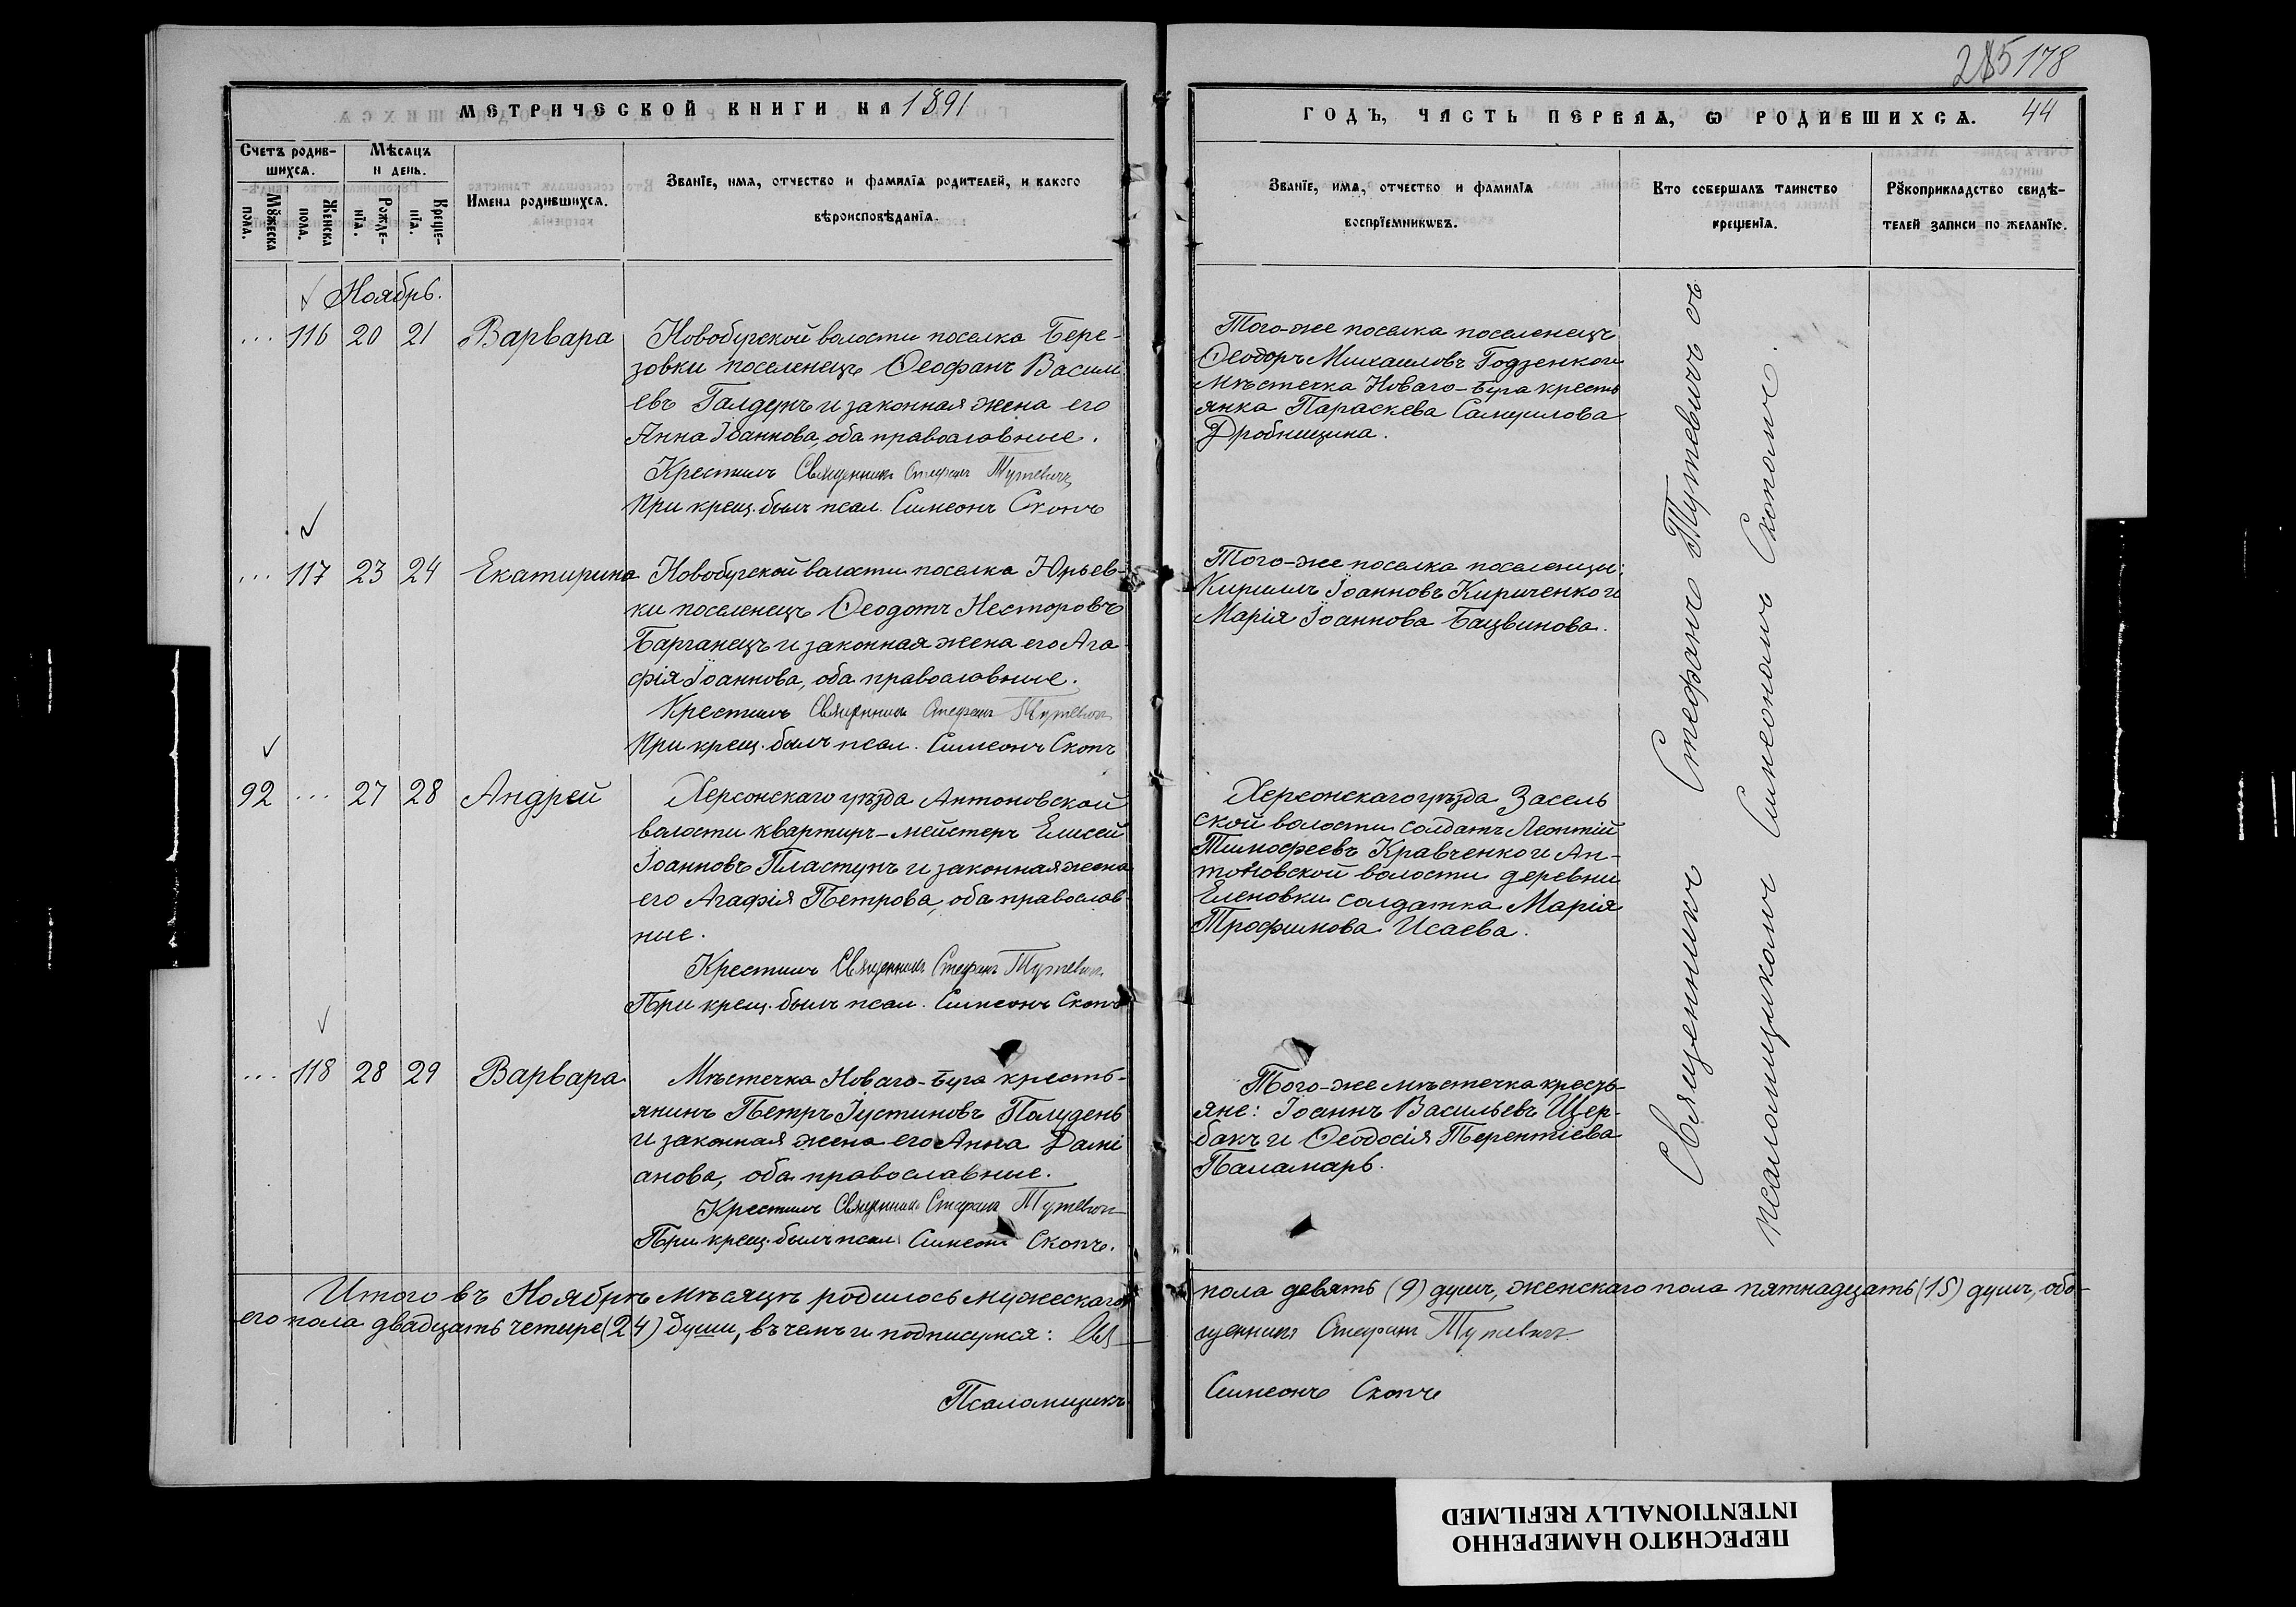 285 178
МЕТРИЧЕСКОЙ КНИГИ НА 1891
ГОДЪ, ЧАСТЬ ПЕРВАѦ, Ѡ РОДИВШИХСѦ. 44
Счетъ родив-
шихсѧ.
Мѣсѧцъ
и день.
Мꙋжеска
пола.
Женска
пола.
Рожде-
нїѧ.
Креще-
нїѧ.
Имена родившихсѧ.
Званїе, имѧ, отчество и фамилїѧ родителей, и какого
вѣроисповѣданїѧ.
Званїе, имѧ, отчество и фамилїѧ
воспрїемникѡвъ.
Кто совершалъ таинство
крещенїѧ.
Рꙋкоприкладство свидѣ-
телей записи по желанїю.
Ноябрь.
... 116 20 21 Варвара
Новобугской волости поселка Бере-
зовки поселенецъ Ѳеофанъ Васили
евъ Галдунъ и законная жена его
Анна Іоаннова, оба православные.
Крестилъ Священникъ Стефанъ Тутевичъ
При крещ. былъ псал. Симеонъ Скопъ
Того-же поселка поселенецъ
Ѳеодоръ Михаиловъ Годзенко и
мѣстечка Новаго-Буга кресть
янка Параскева Самуилова
Дробницина.
... 117 23 24 Екатирина
Новобугской волости поселка Юрьев-
ки поселенецъ Ѳеодотъ Несторовъ
Барганецъ и законная жена его Ага
фія Іоаннова, оба православные.
Крестилъ Священникъ Стефанъ Тутевичъ
При крещ. былъ псал. Симеонъ Скопъ
Того-же поселка поселенцы:
Кириллъ Іоанновъ Кириченко и
Марія Іоаннова Бацвинова.
92 ... 27 28 Андрей
Херсонскаго уѣзда Антоновской
волости квартиръ-мейстеръ Елисей
Іоанновъ Пластунъ и законная жена
его Агафія Петрова, оба православ
ные.
Крестилъ Священникъ Стефанъ Тутевичъ
При крещ. былъ псал. Симеонъ Скопъ
Херсонскаго уѣзда Засель
ской волости солдатъ Леонтій
Тимофеевъ Кравченко и Ан-
тоновской волости деревни
Еленовки солдатка Марія
Трофимова Исаева.
... 118 28 29 Варвара
Мѣстечка Новаго-Буга кресть-
янинъ Петръ Іустиновъ Полудень
и законная жена его Анна Дамі
анова, оба православные.
Крестилъ Священникъ Стефанъ Тутевичъ
При крещ. былъ псал. Симеонъ Скопъ.
Того-же мѣстечка кресть-
яне: Іоаннъ Васильевъ Щер-
бакъ и Ѳеодосія Терентіева
Паламарь.
Священникъ Стефанъ Тутевичъ съ
псаломщикомъ Симеономъ Скопомъ.
Итого въ Ноябрѣ мѣсяцѣ родилось мужескаго
пола девять (9) душъ, женскаго пола пятнадцать (15) душъ, обо-
его пола двадцать четыре (24) души, въ чемъ и подписуемся: Свя
щенникъ Стефанъ Тутевичъ
Псаломщикъ
Симеонъ Скопъ
ПЕРЕСНЯТО НАМЕРЕННО
INTENTIONALLY REFILMED